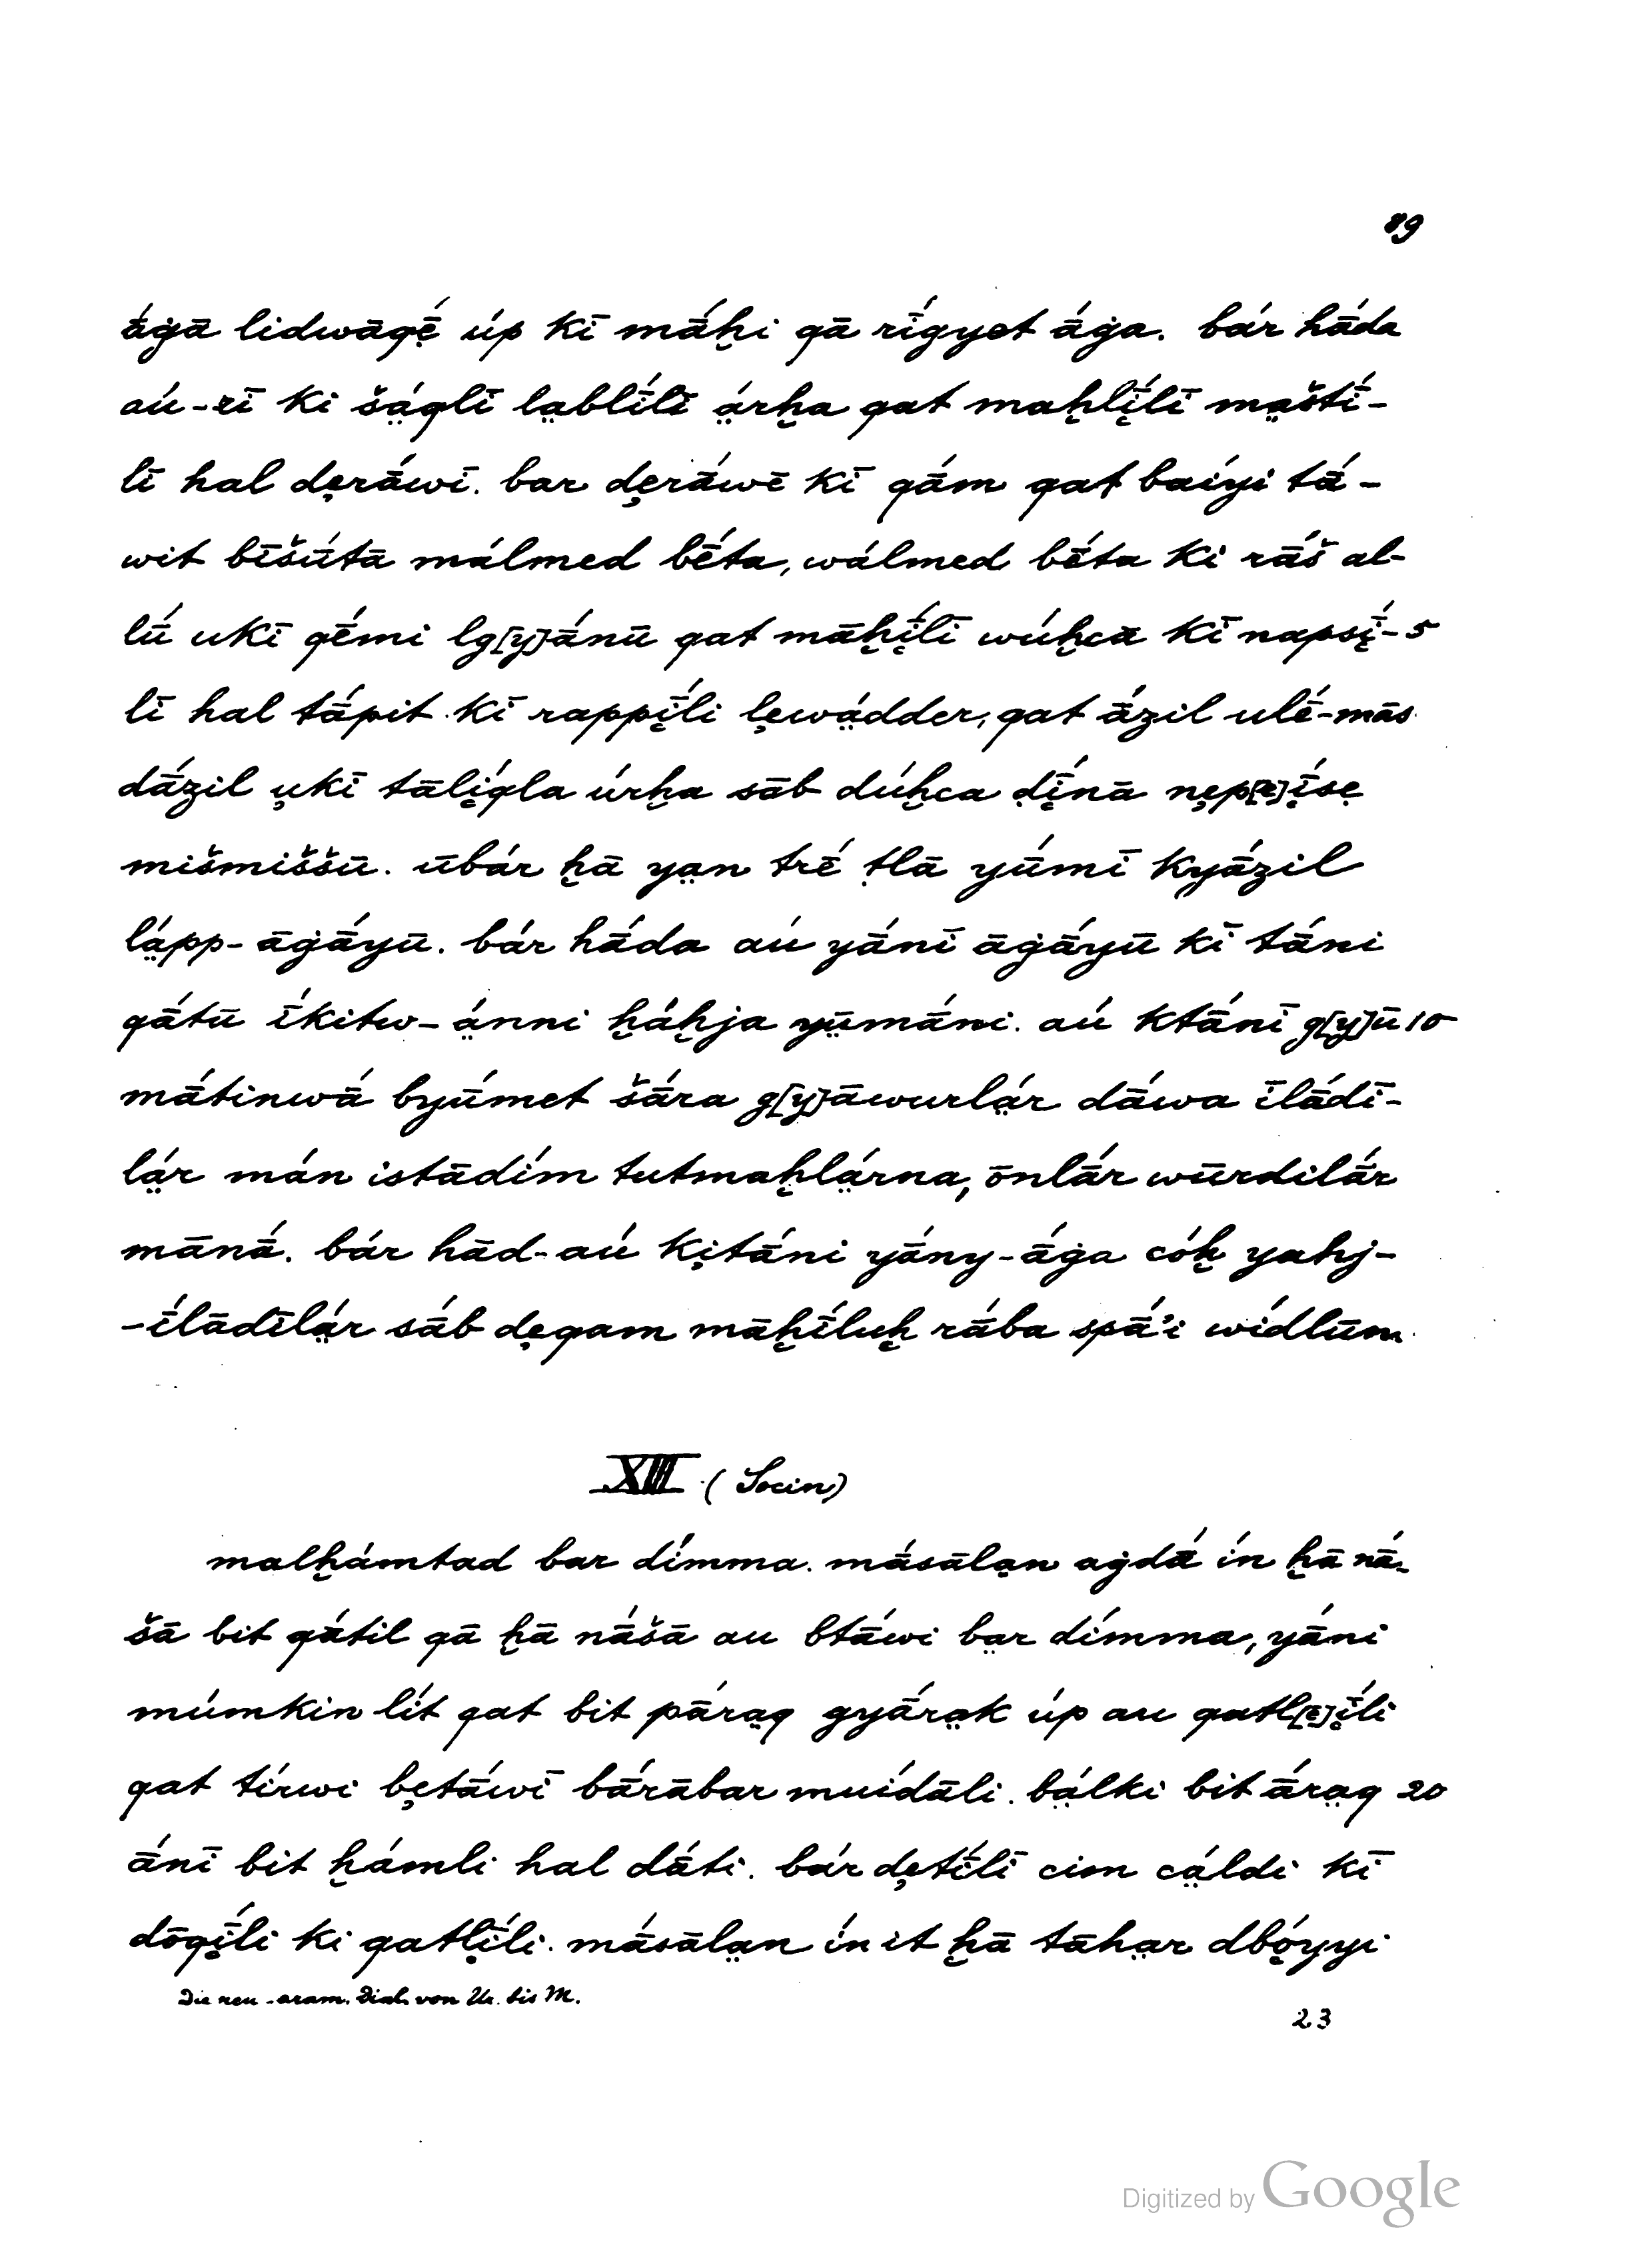 89
ā́ġā lidwāqḗ úp kī mā́ḫi qā rī́gyet ā́ġa. bár hā́da
aú-zī ki šạ́qlī lạblī́lī ạ́rḫa qat maḫlī́lī mạštī́-
lī hal dẹrā́wī. bar dẹrā́wē kī qā́m qat baíyi tā́-
wit bīšū́tā málmed bḗta, wálmed bḗta ki rā́š al-
lū́ ukī qḗmi lg[y]ā́nū qat māḫī́lī wúḫcā kī napsị́- 5
lī hal tā́pit kī rappị̄́li lẹwạ́dder, qat ā́zil ulḗ-mās
dā́zil ụkī tālị́qla úrḫa sāb dúḫca dị̄́nā nẹp[ẹ]ị̄́sẹ
mišmiššū. ūbár ḫā yạn trḗ ṭlā yū́mī kyā́zil
lạ́pp-āġā́yū. bár hā́da aú yā́nī āġā́yū kī tā́ni
qā́tū ī́kitw-ạ́nni ḫáḫja yūmā́ni. aú ktā́nī g[y]ū 10
mā́tinwā byū́met šā́ra g[y]āwurlạ́r dā́wa īlā́dī-
lạ́r mán istādím tutmaḫlạ́rna, ōnlā́r wūrdilā́r
mānā́. bár hād-aú kịtā́ni yā́ny-ā́ġa cóḫ yahj-
-ī́lādīlạ́r sā́b dẹqam māḫī́luḫ rā́ba spā́'i wídlūm
XIII (Socin)
malḫámtad bar dímma. mā́sālạn aġdā́ ín ḫā nā́-
šā bit qā́til qā ḫā nā́šā au btā́wi bạr dímma, yā́ni
múmkin lít qat bit pā́rạq gyā́rạk úp au qatl[ẹ]ị̄́li
qat tírwi bẹtā́wī bā́rābar muídāli. bạ́lki bit ā́rạq 20
ā́nī bit ḫámli hal dā́ti. bár dẹtī́lī cim cạ́ldi kī
dōqị̄́li ki qatlị̄́li. mā́sālạn ín it ḫā tāhạr dbọ́yyi
Die neu-aram. Dial. von Ur. bis M.
23
Digitized by Google